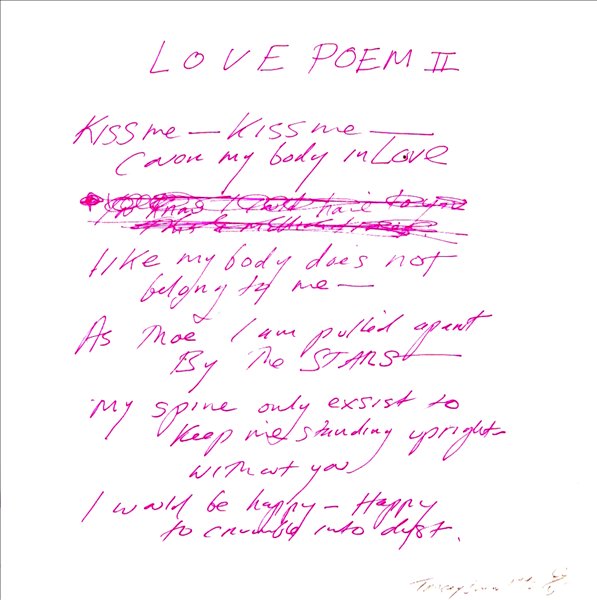 LOVE POEM II
Kiss me — Kiss me —
Cover my body in Love
like my body does not
belong to me —
As thoe I am pulled apart
By The STARS —
My spine only exsist to
Keep me standing upright —
without you
I would be happy — Happy
to crumble into dust.